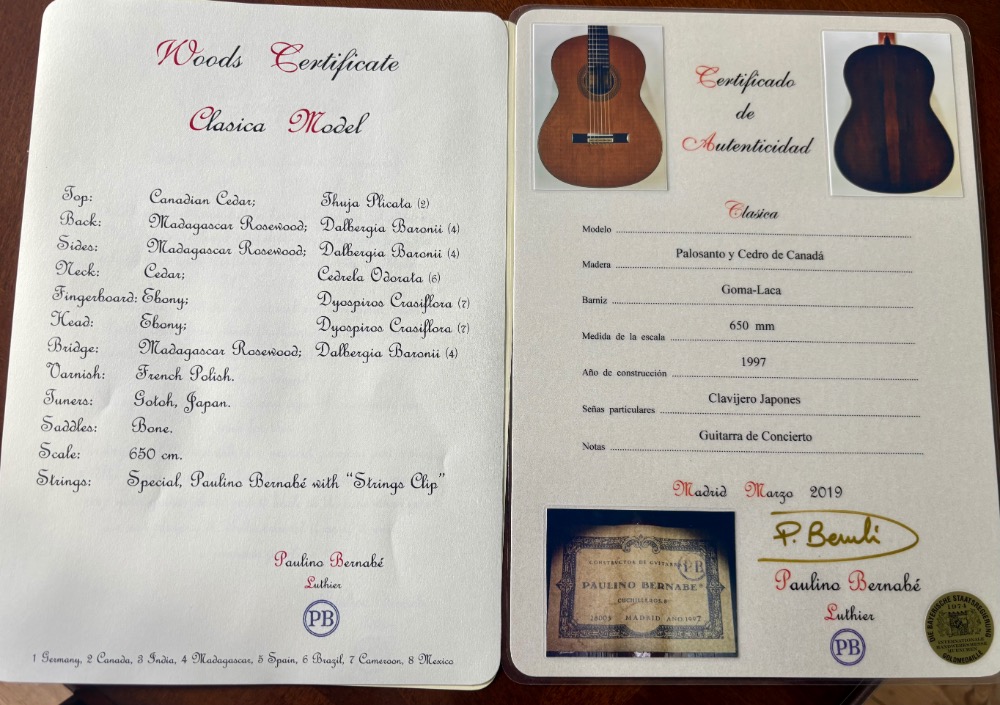 Woods Certificate
Clasica Model
Top: Canadian Cedar; Thuja Plicata (2)
Back: Madagascar Rosewood; Dalbergia Baronii (4)
Sides: Madagascar Rosewood; Dalbergia Baronii (4)
Neck: Cedar; Cedrela Odorata (6)
Fingerboard: Ebony; Dyospiros Crasiflora (7)
Head: Ebony; Dyospiros Crasiflora (7)
Bridge: Madagascar Rosewood; Dalbergia Baronii (4)
Varnish: French Polish.
Tuners: Gotoh, Japan.
Saddles: Bone.
Scale: 650 cm.
Strings: Special, Paulino Bernabé with "Strings Clip"
Paulino Bernabé
Luthier
PB
1 Germany, 2 Canada, 3 India, 4 Madagascar, 5 Spain, 6 Brazil, 7 Cameroon, 8 Mexico
Certificado
de
Autenticidad
Modelo Clasica
Madera Palosanto y Cedro de Canadá
Barniz Goma-Laca
Medida de la escala 650 mm
Año de construcción 1997
Señas particulares Clavijero Japones
Notas Guitarra de Concierto
Madrid Marzo 2019
CONSTRUCTOR DE GUITARRAS
PB
PAULINO BERNABE
CUCHILLEROS, 8
28005 MADRID AÑO 1997
Paulino Bernabé
Luthier
PB
DIE BAYERISCHE STAATSREGIERUNG
1974
INTERNATIONALE
HANDWERKSMESSE
MÜNCHEN
GOLDMEDAILLE